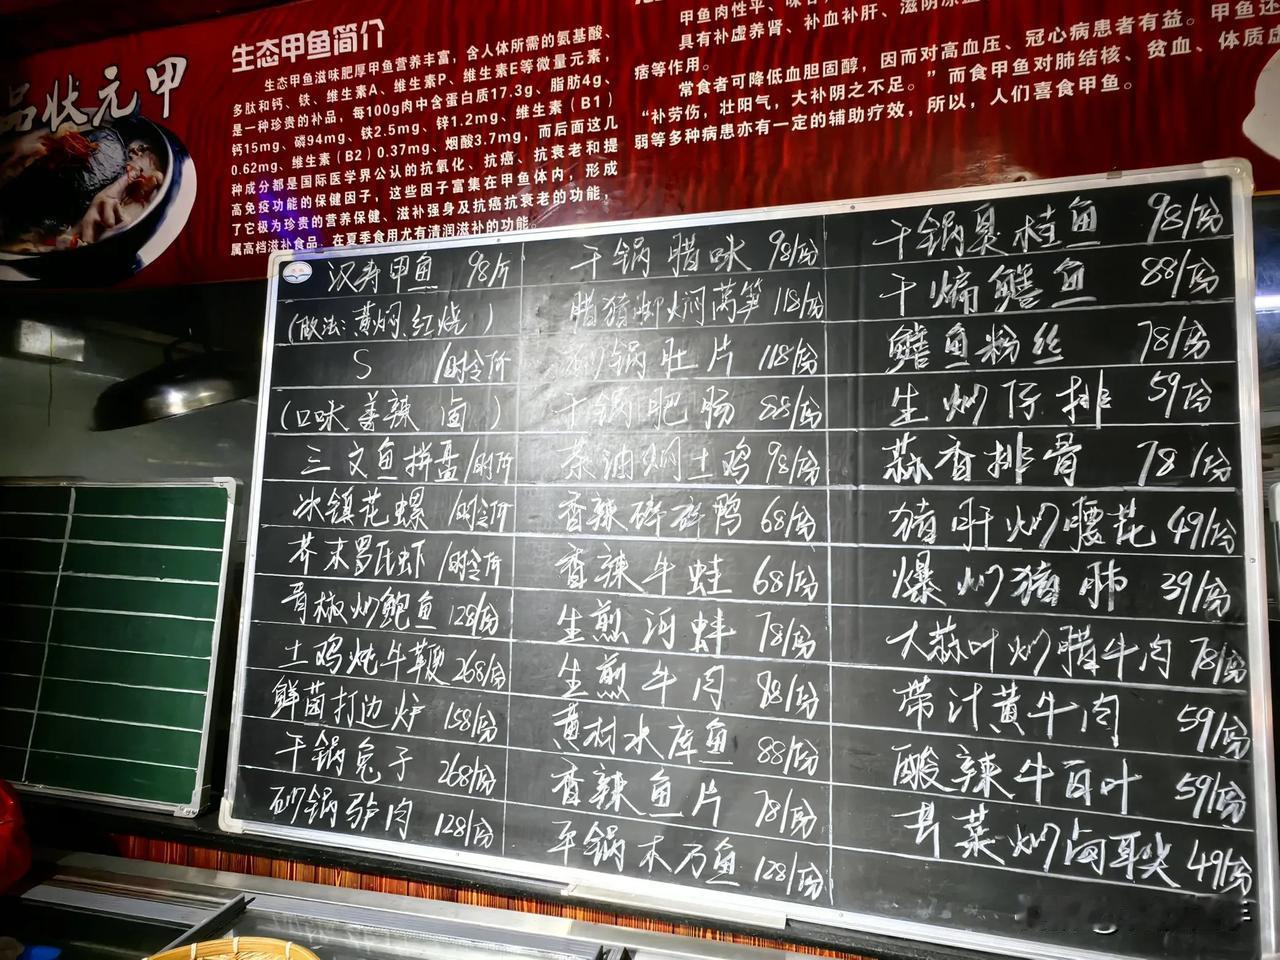 品状元甲
生态甲鱼简介
生态甲鱼滋味肥厚甲鱼营养丰富，含人体所需的氨基酸、
多肽和钙、铁、维生素A、维生素P、维生素E等微量元素，
是一种珍贵的补品，每100g肉中含蛋白质17.3g、脂肪4g、
钙15mg、磷94mg、铁2.5mg、锌1.2mg、维生素（B1）
0.62mg、维生素（B2）0.37mg、烟酸3.7mg，而后面这几
种成分都是国际医学界公认的抗氧化、抗癌、抗衰老和提
高免疫功能的保健因子，这些因子富集在甲鱼体内，形成
了它极为珍贵的营养保健、滋补强身及抗癌抗衰老的功能，
属高档滋补食品，在夏季食用尤有清润滋补的功能。
甲鱼肉性平、味甘
具有补虚养肾、补血补肝、滋阴凉血
病等作用。
常食者可降低血胆固醇，因而对高血压、冠心病患者有益。甲鱼还
“补劳伤，壮阳气，大补阴之不足。”而食甲鱼对肺结核、贫血、体质虚
弱等多种病患亦有一定的辅助疗效，所以，人们喜食甲鱼。
汉寿甲鱼 98/斤
(做法:黄焖 红烧 )
S /时令价
(口味 姜辣 卤 )
三文鱼拼盘/时价
冰镇花螺 /时令价
芥末罗氏虾 /时令价
青椒炒鲍鱼 128/份
土鸡炖牛鞭 268/份
鲜菌打边炉 158/份
干锅兔子 268/份
砂锅驴肉 128/份
干锅腊味 98/份
腊猪脚焖莴笋 118/份
砂锅肚片 118/份
干锅肥肠 88/份
茶油焖土鸡 98/份
香辣碎碎鸭 68/份
香辣牛蛙 68/份
生煎河蚌 78/份
生煎牛肉 88/份
黄材水库鱼 88/份
香辣鱼片 78/份
干锅木方鱼 128/份
干锅臭桂鱼 98/份
干煸鳝鱼 88/份
鳝鱼粉丝 78/份
生炒仔排 59/份
蒜香排骨 78/份
猪肝炒腰花 49/份
爆炒猪肺 39/份
大蒜叶炒腊牛肉 78/份
带汁黄牛肉 59/份
酸辣牛百叶 59/份
韭菜炒卤耳尖 49/份